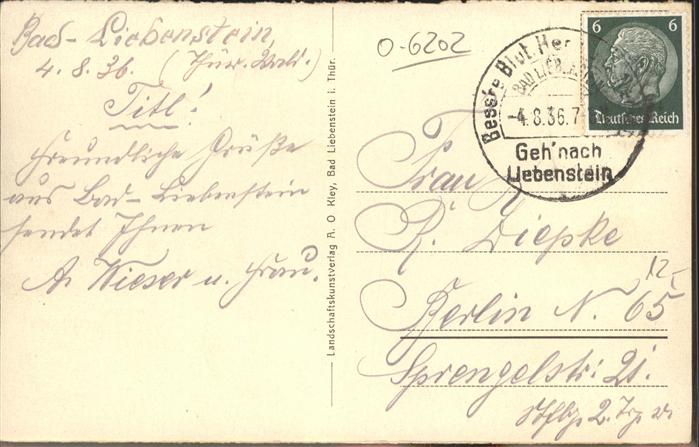 Bad-Liebenstein,
4.8.36. (Thür. Wald).
Titl!
Freundliche Grüße
aus Bad-Liebenstein
sendet Ihnen
A. Wieser u. Frau.
Landschaftskunstverlag A. O Kley, Bad Liebenstein i. Thür.
O-6202
Blut, Her
BAD LIEB
-4.8.36.7-
Geh'nach
Liebenstein
6 6
Deutsches Reich
Frau
R. Diepke
12-
Berlin N. 65
Sprengelstr: 21.
2. Trp.